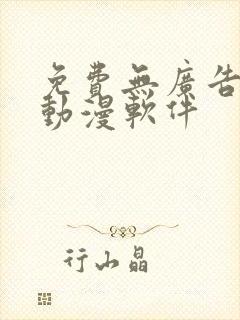 免費無廣告
動漫軟件
行山晶